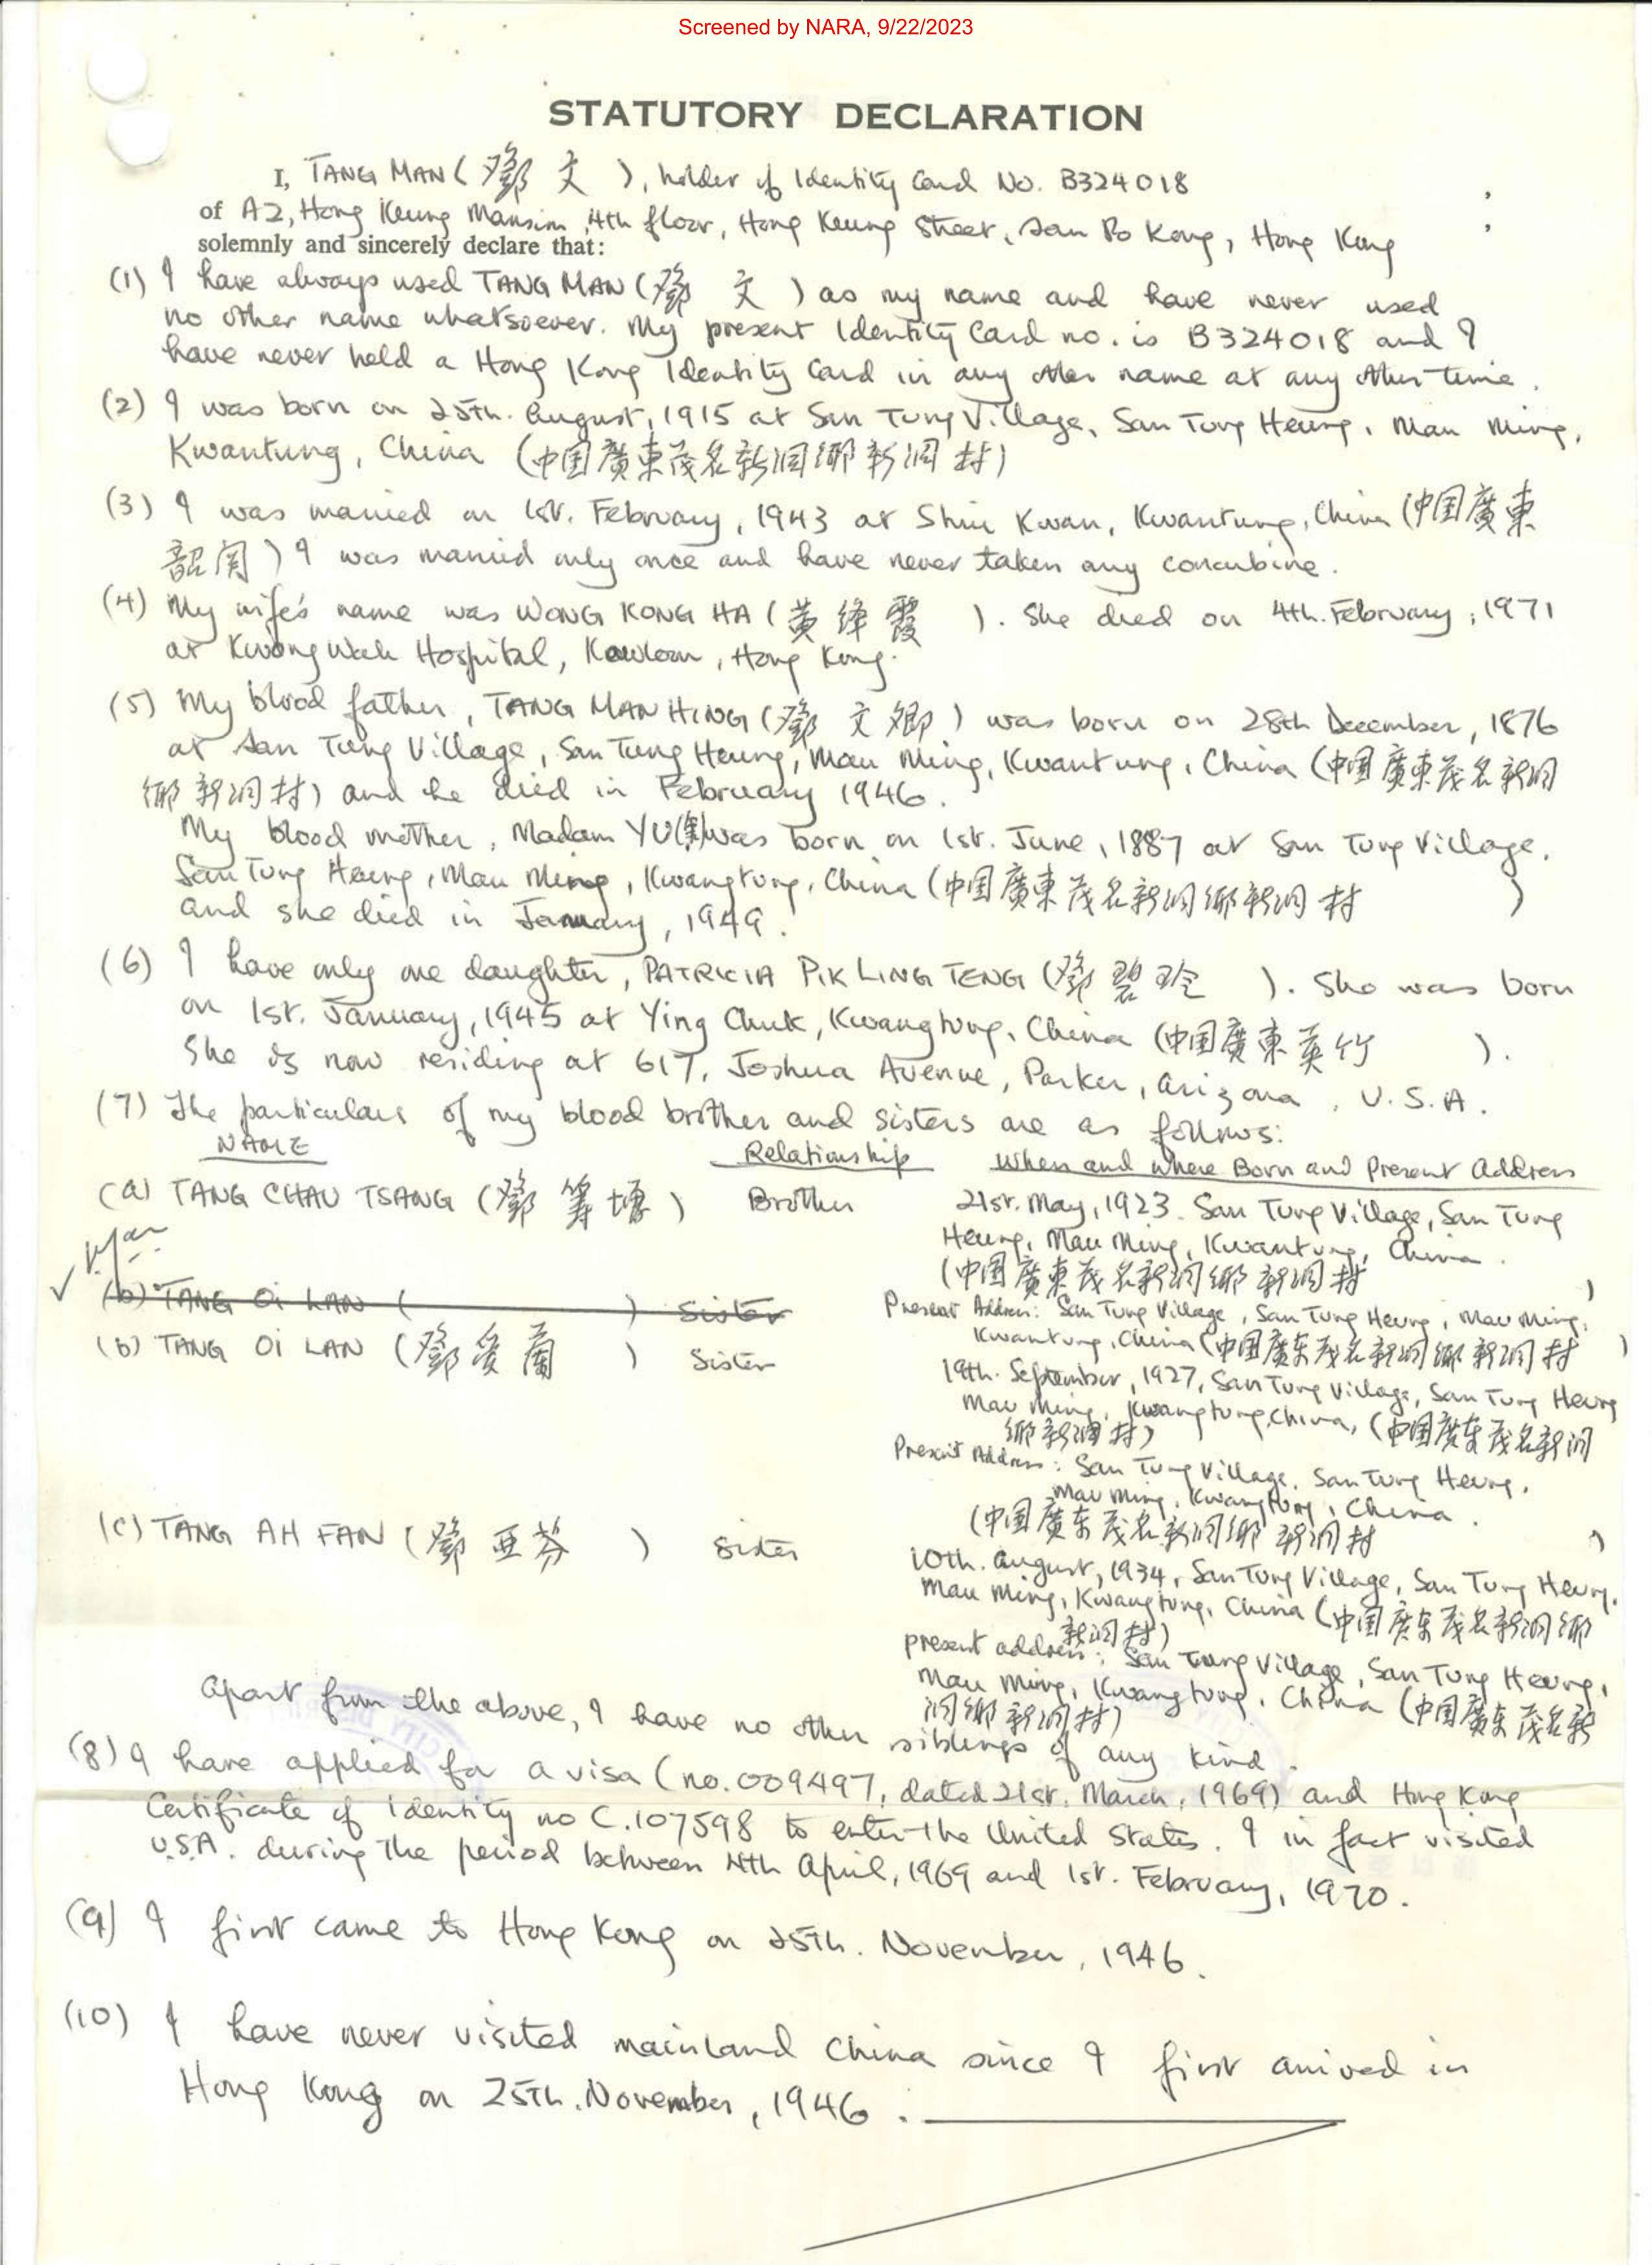 Screened by NARA, 9/22/2023
STATUTORY DECLARATION
I, TANG MAN (鄧 文), holder of Identity Card No. B324018
of A2, Hong Keung Mansion, 4th floor, Hong Keung Street, San Po Kong, Hong Kong
solemnly and sincerely declare that:
(1) I have always used TANG MAN (鄧 文) as my name and have never used
no other name whatsoever. My present Identity Card no. is B324018 and I
have never held a Hong Kong Identity Card in any other name at any other time.
(2) I was born on 25th. August, 1915 at San Tung Village, San Tung Heung, Mau Ming,
Kwantung, China (中国廣東茂名新洞鄉新洞村)
(3) I was married on 1st. February, 1943 at Shiu Kwan, Kwantung, China (中国廣東
韶関) I was married only once and have never taken any concubine.
(4) My wife's name was WONG KONG HA (黃绛霞). She died on 4th. February, 1971
at Kwong Wah Hospital, Kowloon, Hong Kong.
(5) My blood father, TANG MAN HING (鄧 文卿) was born on 28th December, 1876
at San Tung Village, San Tung Heung, Mau Ming, Kwantung, China (中国廣東茂名新洞
鄉新洞村) and he died in February 1946.
My blood mother, Madam YU was born on 1st. June, 1887 at San Tung Village,
San Tung Heung, Mau Ming, Kwangtung, China (中国廣東茂名新洞鄉新洞村)
and she died in January, 1949.
(6) I have only one daughter, PATRICIA PIK LING TENG (鄧碧玲). She was born
on 1st. January, 1945 at Ying Chuk, Kwangtung, China (中国廣東英竹).
She is now residing at 617, Joshua Avenue, Parker, Arizona, U.S.A.
(7) The particulars of my blood brother and sisters are as follows:
NAME Relationship When and where Born and Present Address
(a) TANG CHAU TSANG (鄧籌塘) Brother 21st. May, 1923. San Tung Village, San Tung
Heung, Mau Ming, Kwantung, China.
(中国廣東茂名新洞鄉新洞村)
(b) TANG OI LAN ( ) Sister
Present Address: San Tung Village, San Tung Heung, Mau Ming,
Kwantung, China (中国廣东茂名新洞鄉新洞村)
(b) TANG OI LAN (鄧爱蘭) Sister
19th. September, 1927, San Tung Village, San Tung Heung
Mau Ming, Kwangtung, China, (中国廣东茂名新洞
鄉新洞村)
Present Address: San Tung Village, San Tung Heung,
Mau Ming, Kwangtung, China.
(中国廣东茂名新洞鄉新洞村)
(c) TANG AH FAN (鄧亚芬) Sister
10th. August, 1934, San Tung Village, San Tung Heung,
Mau Ming, Kwangtung, China (中国廣东茂名新洞鄉
新洞村)
present address: San Tung Village, San Tung Heung,
Mau Ming, Kwangtung, China (中国廣东茂名新
洞鄉新洞村)
Apart from the above, I have no other siblings of any kind.
(8) I have applied for a visa (no. 009497, dated 21st. March, 1969) and Hong Kong
Certificate of Identity no C.107598 to enter the United States. I in fact visited
U.S.A. during the period between 4th April, 1969 and 1st. February, 1970.
(9) I first came to Hong Kong on 25th. November, 1946.
(10) I have never visited mainland China since I first arrived in
Hong Kong on 25th. November, 1946.